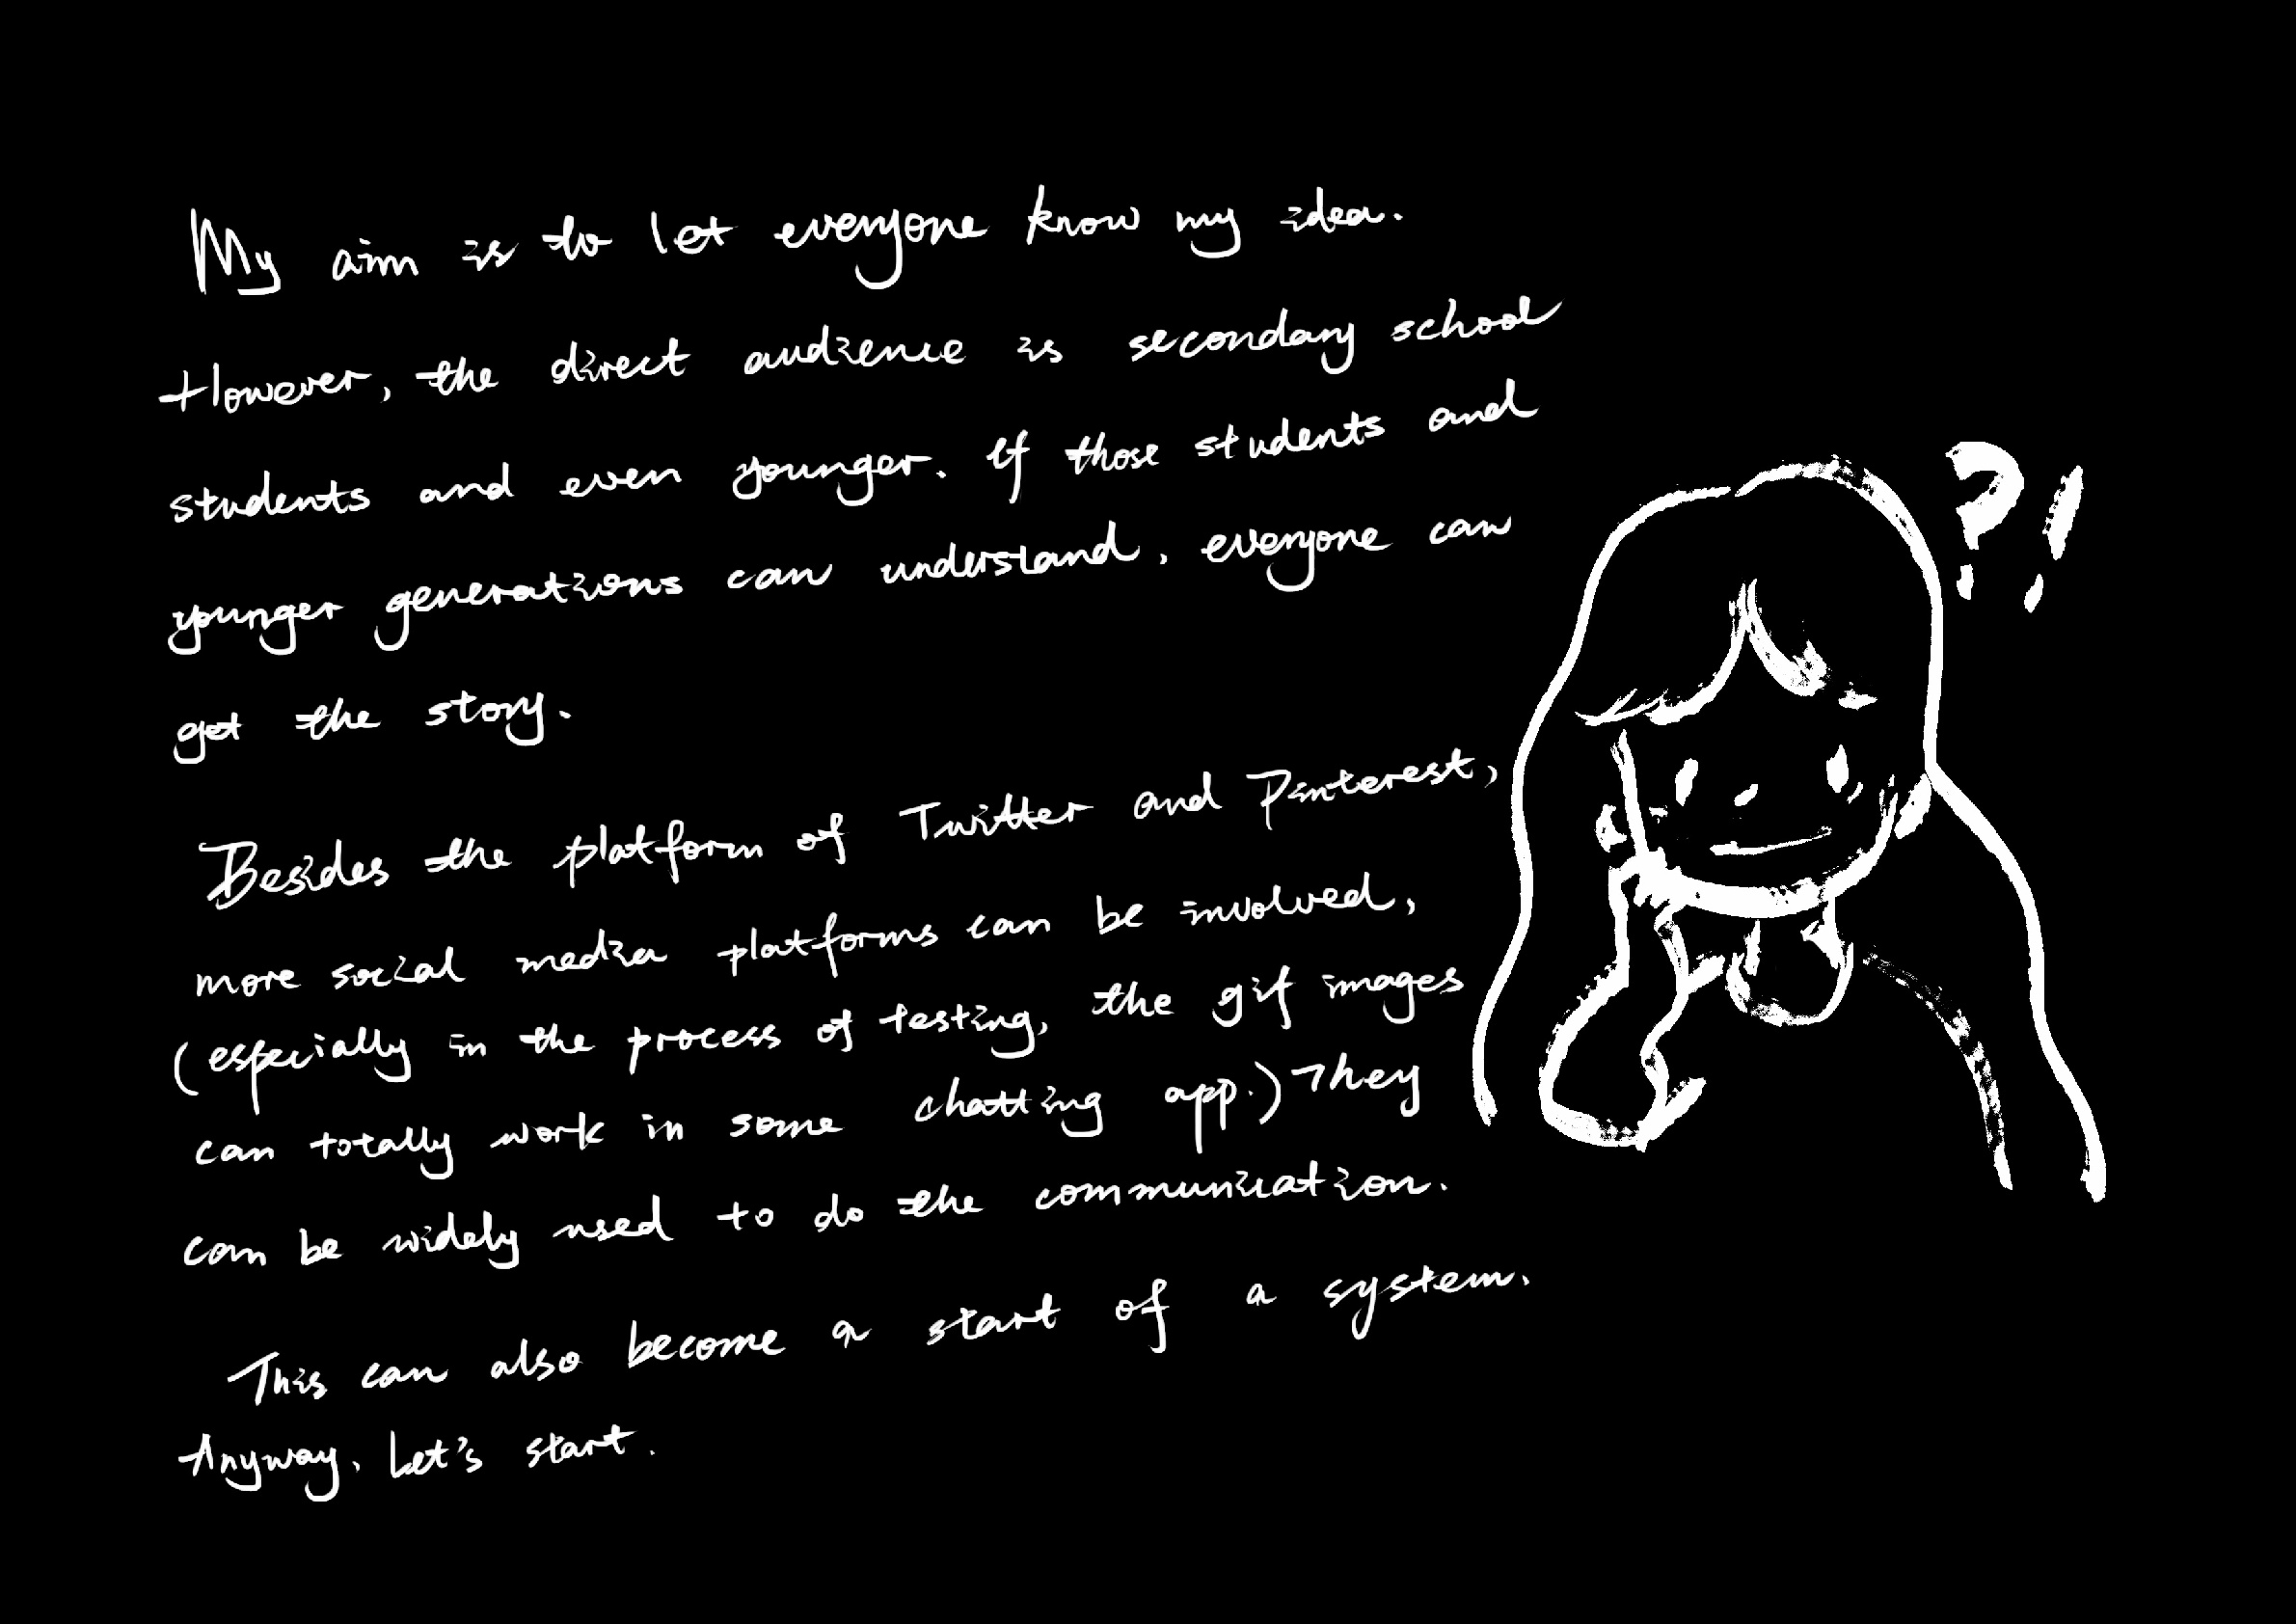 My aim is to let everyone know my idea.
However, the direct audience is secondary school
students and even younger. If those students and
younger generations can understand, everyone can
get the story.
Besides the platform of Twitter and Pinterest,
more social media platforms can be involved,
(especially in the process of testing, the gif images
can totally work in some chatting app.) They
can be widely used to do the communication.
This can also become a start of a system.
Anyway, Let's start.
?!